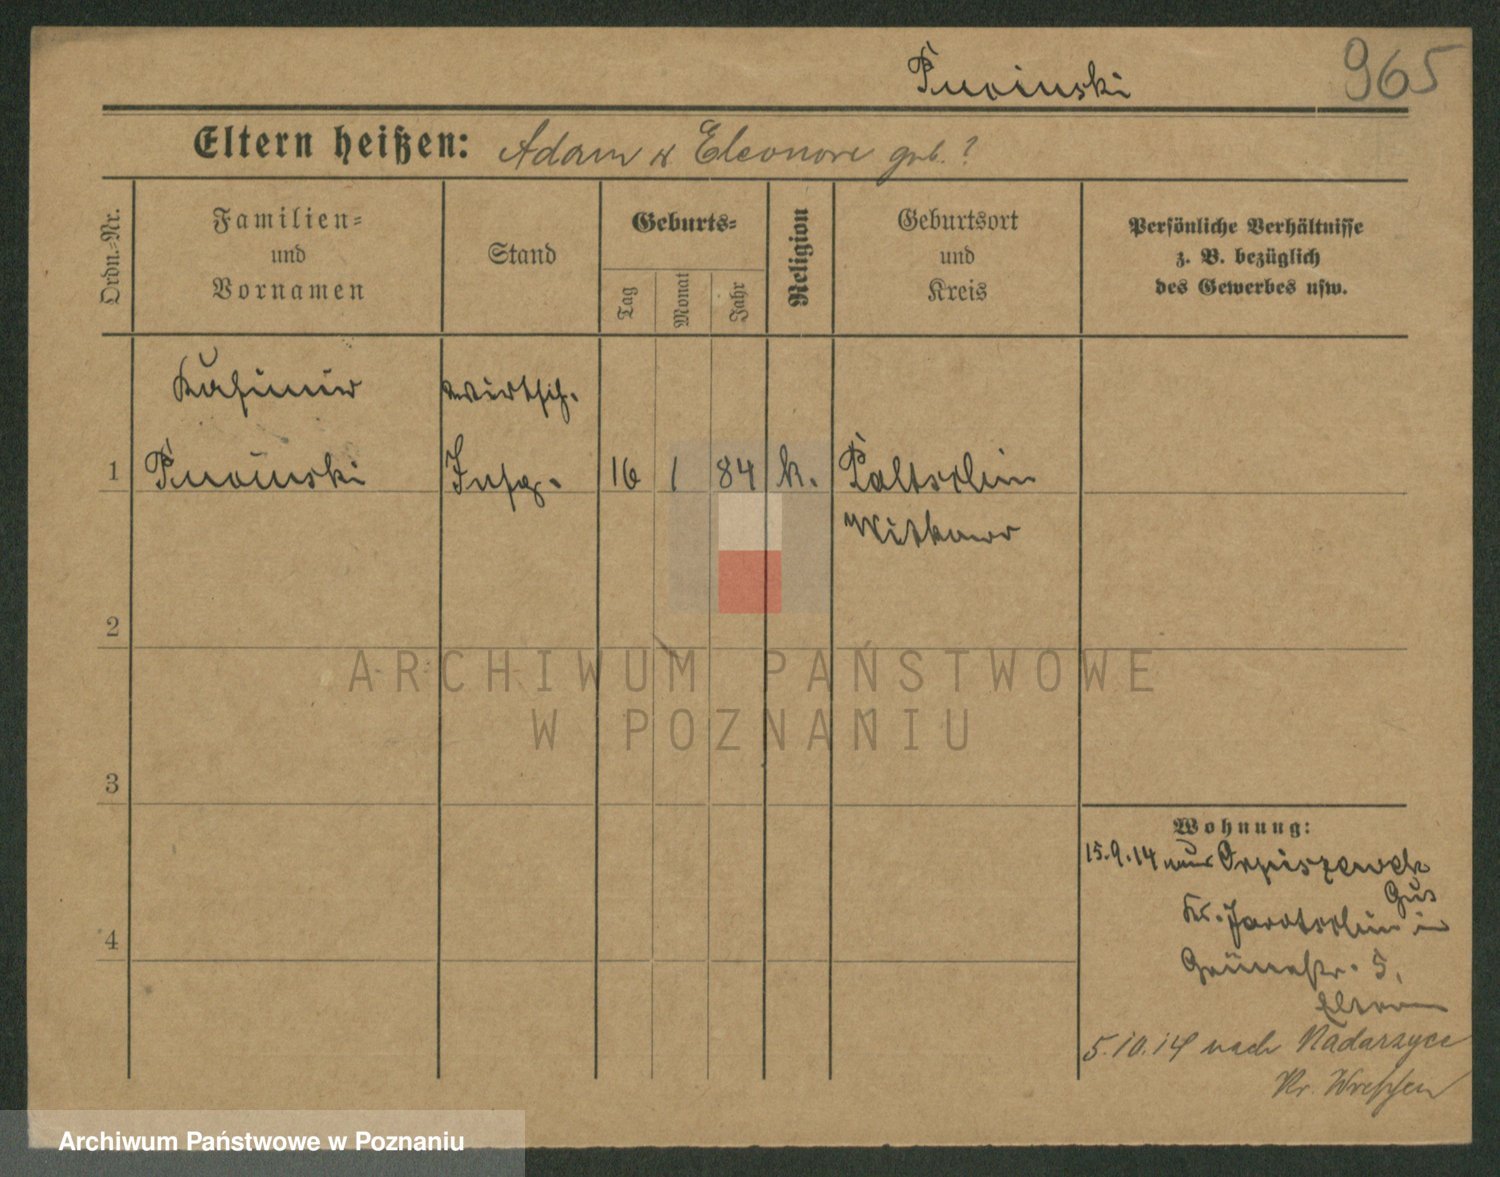 Pucinski
965
Eltern heißen: Adam & Eleonore geb. ?
Ordn.-Nr.
Familien- und Vornamen
Stand
Geburts-
Tag
Monat
Jahr
Religion
Geburtsort und Kreis
Persönliche Verhältnisse
z. B. bezüglich
des Gewerbes usw.
Kasimir
Wirtsch.
1 Pucinski Insp. 16 1 84 k.
Witkowo
2
3
4
Wohnung:
15.9.14 aus Orpiszewek
Gut
Kr. Jarotschin in
Grünestr. 5,
Eltern
5.10.14 nach Nadarzyce
Kr. Wreschen
ARCHIWUM PAŃSTWOWE
W POZNANIU
Archiwum Państwowe w Poznaniu